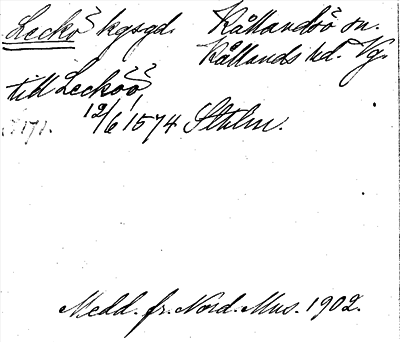 Lecko kgsgd. Kållandsö sn.
Kållands hd. Vg.
till Leckoö
12/6 1574 Sthlm.
Medd. fr. Nord. Mus. 1902.